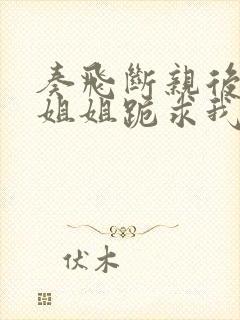 秦飛斷親後
姐姐跪求我
伏木